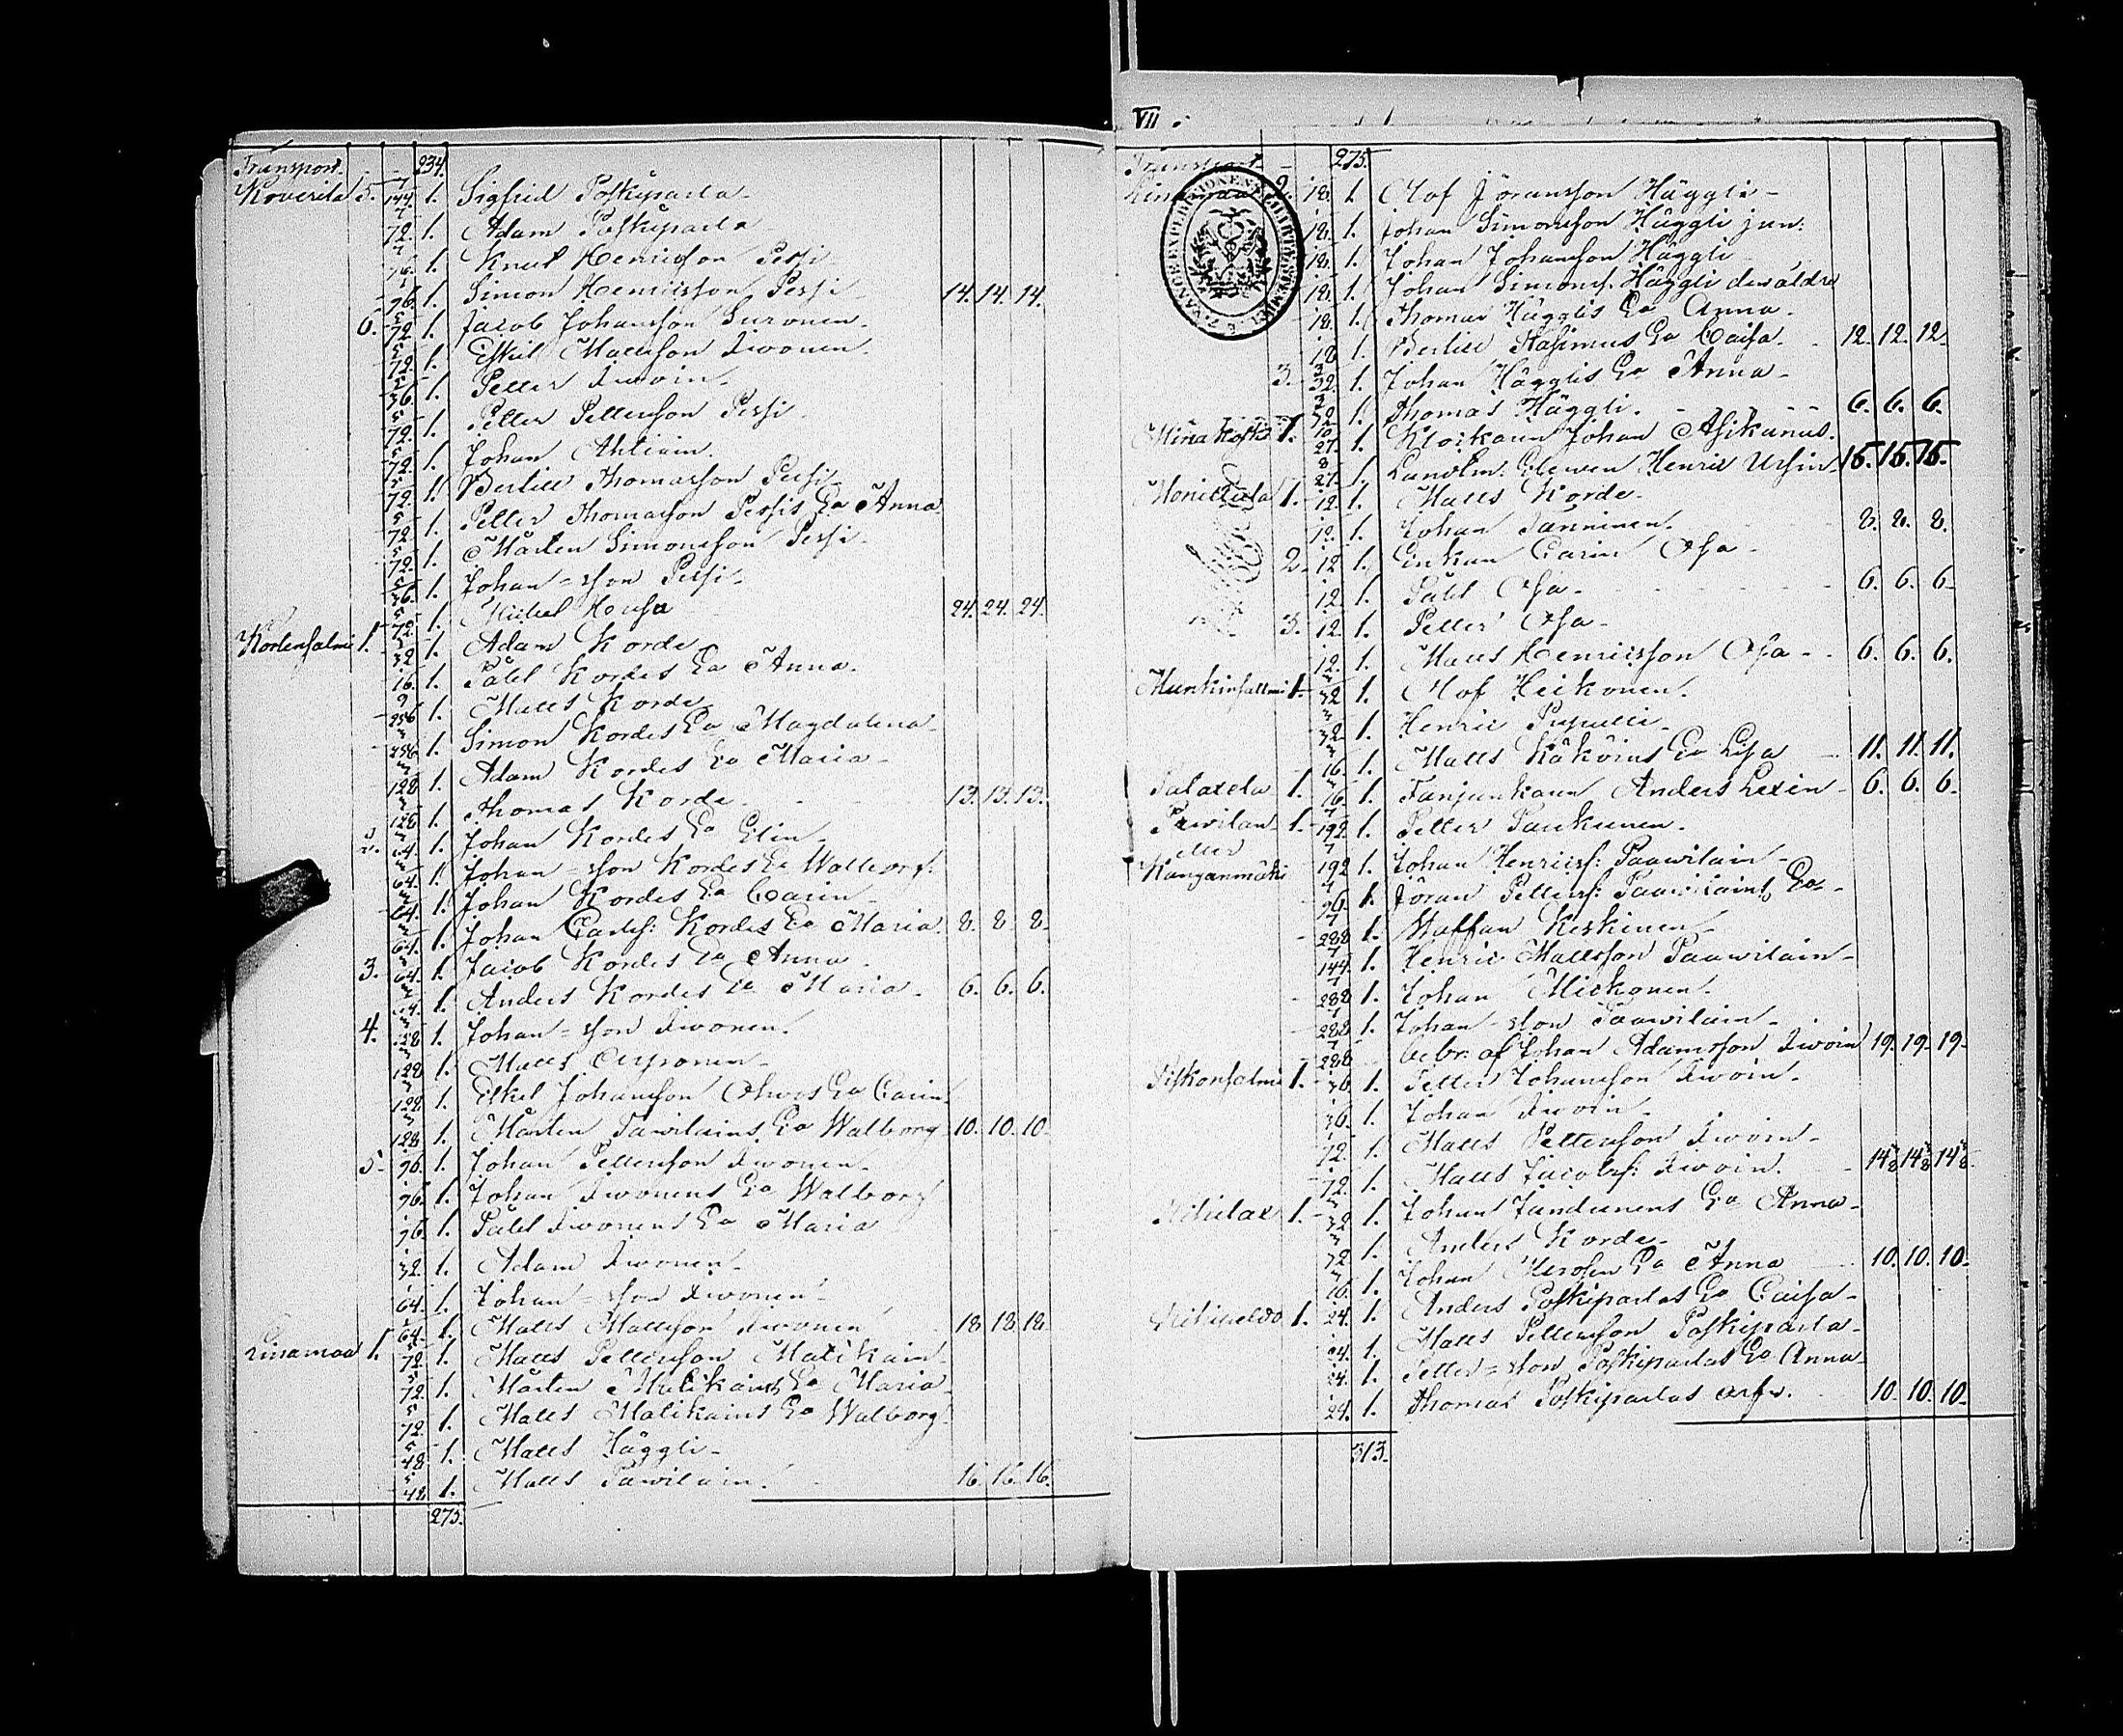 Transport - - 234.
Koverila 5. 7/144. 1. Sigfrid Poskiparta -
7/72. 1. Adam Poskiparta
1. Knut Henricsson Pessi
96. 1. Simon Henricsson Pessi - 14. 14. 14.
6. 5/72. 1. Jacob Johansson Suronen.
5/72. 1. Eskil Mattsson Iwonen.
5/36. 1. Petter Iwoin.
5/72. 1. Petter Pettersson Pessi.
5/72. 1. Johan Ahtiain.
5/72. 1. Bertill Thomasson Pessi -
5/72. 1. Petter Thomasson Pessis Ea Anna
5/72. 1. Mårten Simonsson Pessi -
5/36. 1. Johan = sson Pessi -
5/72. 1. Michel Heusa 24. 24. 24.
Kortensalmi 1. 3/32 1. Adam Korde
16. 1. Påhl Kordes Ea Anna.
9/256 1. Matts Korde
3/256 1. Simon Kordes Ea Magdalena -
3/128 1. Adam Kordes Ea Maria -
3/128 1. Thomas Korde - 13. 13. 13.
2. 3/64. 1. Johan Kordes Ea Elin -
3/64. 1. Johan = sson Kordes Ea Wallborg.
3/64. 1. Johan Kordes Ea Carin -
3/64. 1. Johan Carlss: Kordes Ea Maria. 8. 8. 8.
3. 3/64. 1. Jacob Kordes Ea Anna
3/64. 1. Anders Kordes Ea Maria. 6. 6. 6.
4. 3/128 1. Johan = sson Iwonen.
3/128 1. Matts
3/128 1. Eskel Johansson Ea Carin -
3/128 1. Mårten Pawilains Ea Walborg 10. 10. 10.
5. 96. 1. Johan Pettersson Iwonen.
96. 1. Johan Iwonens Ea Walborg
96. 1. Påhl Iwonens Ea Maria
32. 1. Adam Iwonen -
64. 1. Johan = sson Iwonen -
64. 1. Matts Mattsson Iwonen 18 18 18.
Linamaa 1. 5/72. 1. Matts Pettersson Matikain -
5/72. 1. Mårten Matikains Ea Maria -
5/72. 1. Matts Matikains Ea Walborg.
5/48 1. Matts Häggli -
5/48 1. Matts Pawilain. 16. 16. 16.
275.
VII
Transport - 275.
Linamaa 2. 18. 1. Olof Jöransson Häggli -
18. 1. Johan Simonsson Häggli jun:
18. 1. Johan Johansson Häggli
18. 1. Johan Simons. Häggli den äldre
18. 1. Thomas Hägglis Ea Anna.
18 1. Bertill Ea Caisa. 12. 12. 12.
3. 3/32. 1. Johan Hägglis Ea Anna -
3/32 1. Thomas Häggli. - - - 6. 6. 6.
1. 10/27. 1. Klockaren Johan Asikanus.
8/27. 1. Henric Ursin. 15. 15. 15.
1. 12. 1. Matts Korde -
12. 1. Johan Tänninen. 8. 8. 8.
2. 12 1. Enkan Carin Osa -
12. 1. Påhl Osa - 6. 6. 6.
3. 12. 1. Petter Osa -
12. 1. Matts Henricsson Osa - - 6. 6. 6.
Munkinsallmi 1. 3/32 1. Olof Heikonen.
3/32. 1. Henric Puputti -
3/16. 1. Matts Ea Lisa - 11. 11. 11.
Palaxela 1. 3/16. 1. Fanjunkaren Anders Lexin - 6. 6. 6.
Pawilan 1. 7/192. 1. Petter Paukunen.
eller 7/192 1. Johan Henricss: Paawilain -
Kanganmäki 7/96 1. Jöran Petterss: Paawilains Ea -
7/288 1. Staffan Keskinen -
7/144. 1. Henric Mattsson Paawilain -
7/288 1. Johan Mickonen.
7/288 1. Johan = sson Paawilain -
7/288 Gebr: af Johan Adamsson Iwoin 19. 19. 19.
Piskonsalmi 1. 36. 1. Petter Johansson Iwoin.
36. 1. Johan Iwoin -
72. 1. Matts Pettersson Iwoin -
72. 1. Matts Jacobss: Iwoin. 14 14 14
1. 3/32. 1. Johan Ea Anna -
3/32 1. Anders Korde -
3/16. 1. Johan Ea Anna 10. 10. 10.
1. 24. 1. Anders Poskipartas Ea Caisa -
24. 1. Matts Pettersson Poskiparta -
24. 1. Petter = sson Poskipartas Ea Anna
24. 1. Thomas Poskipartas arfv. 10. 10. 10.
313.